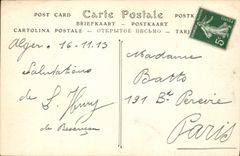 POST CARD Carte Postale
BRIEFKAART - POSTKARTE
CARTOLINA POSTALE - ОТКРЫТОЕ ПИСЬМО - TARJ
Alger 16-11.13
Madame
Salutations
de
191 Bd Pereire
de Besançon
Paris
5